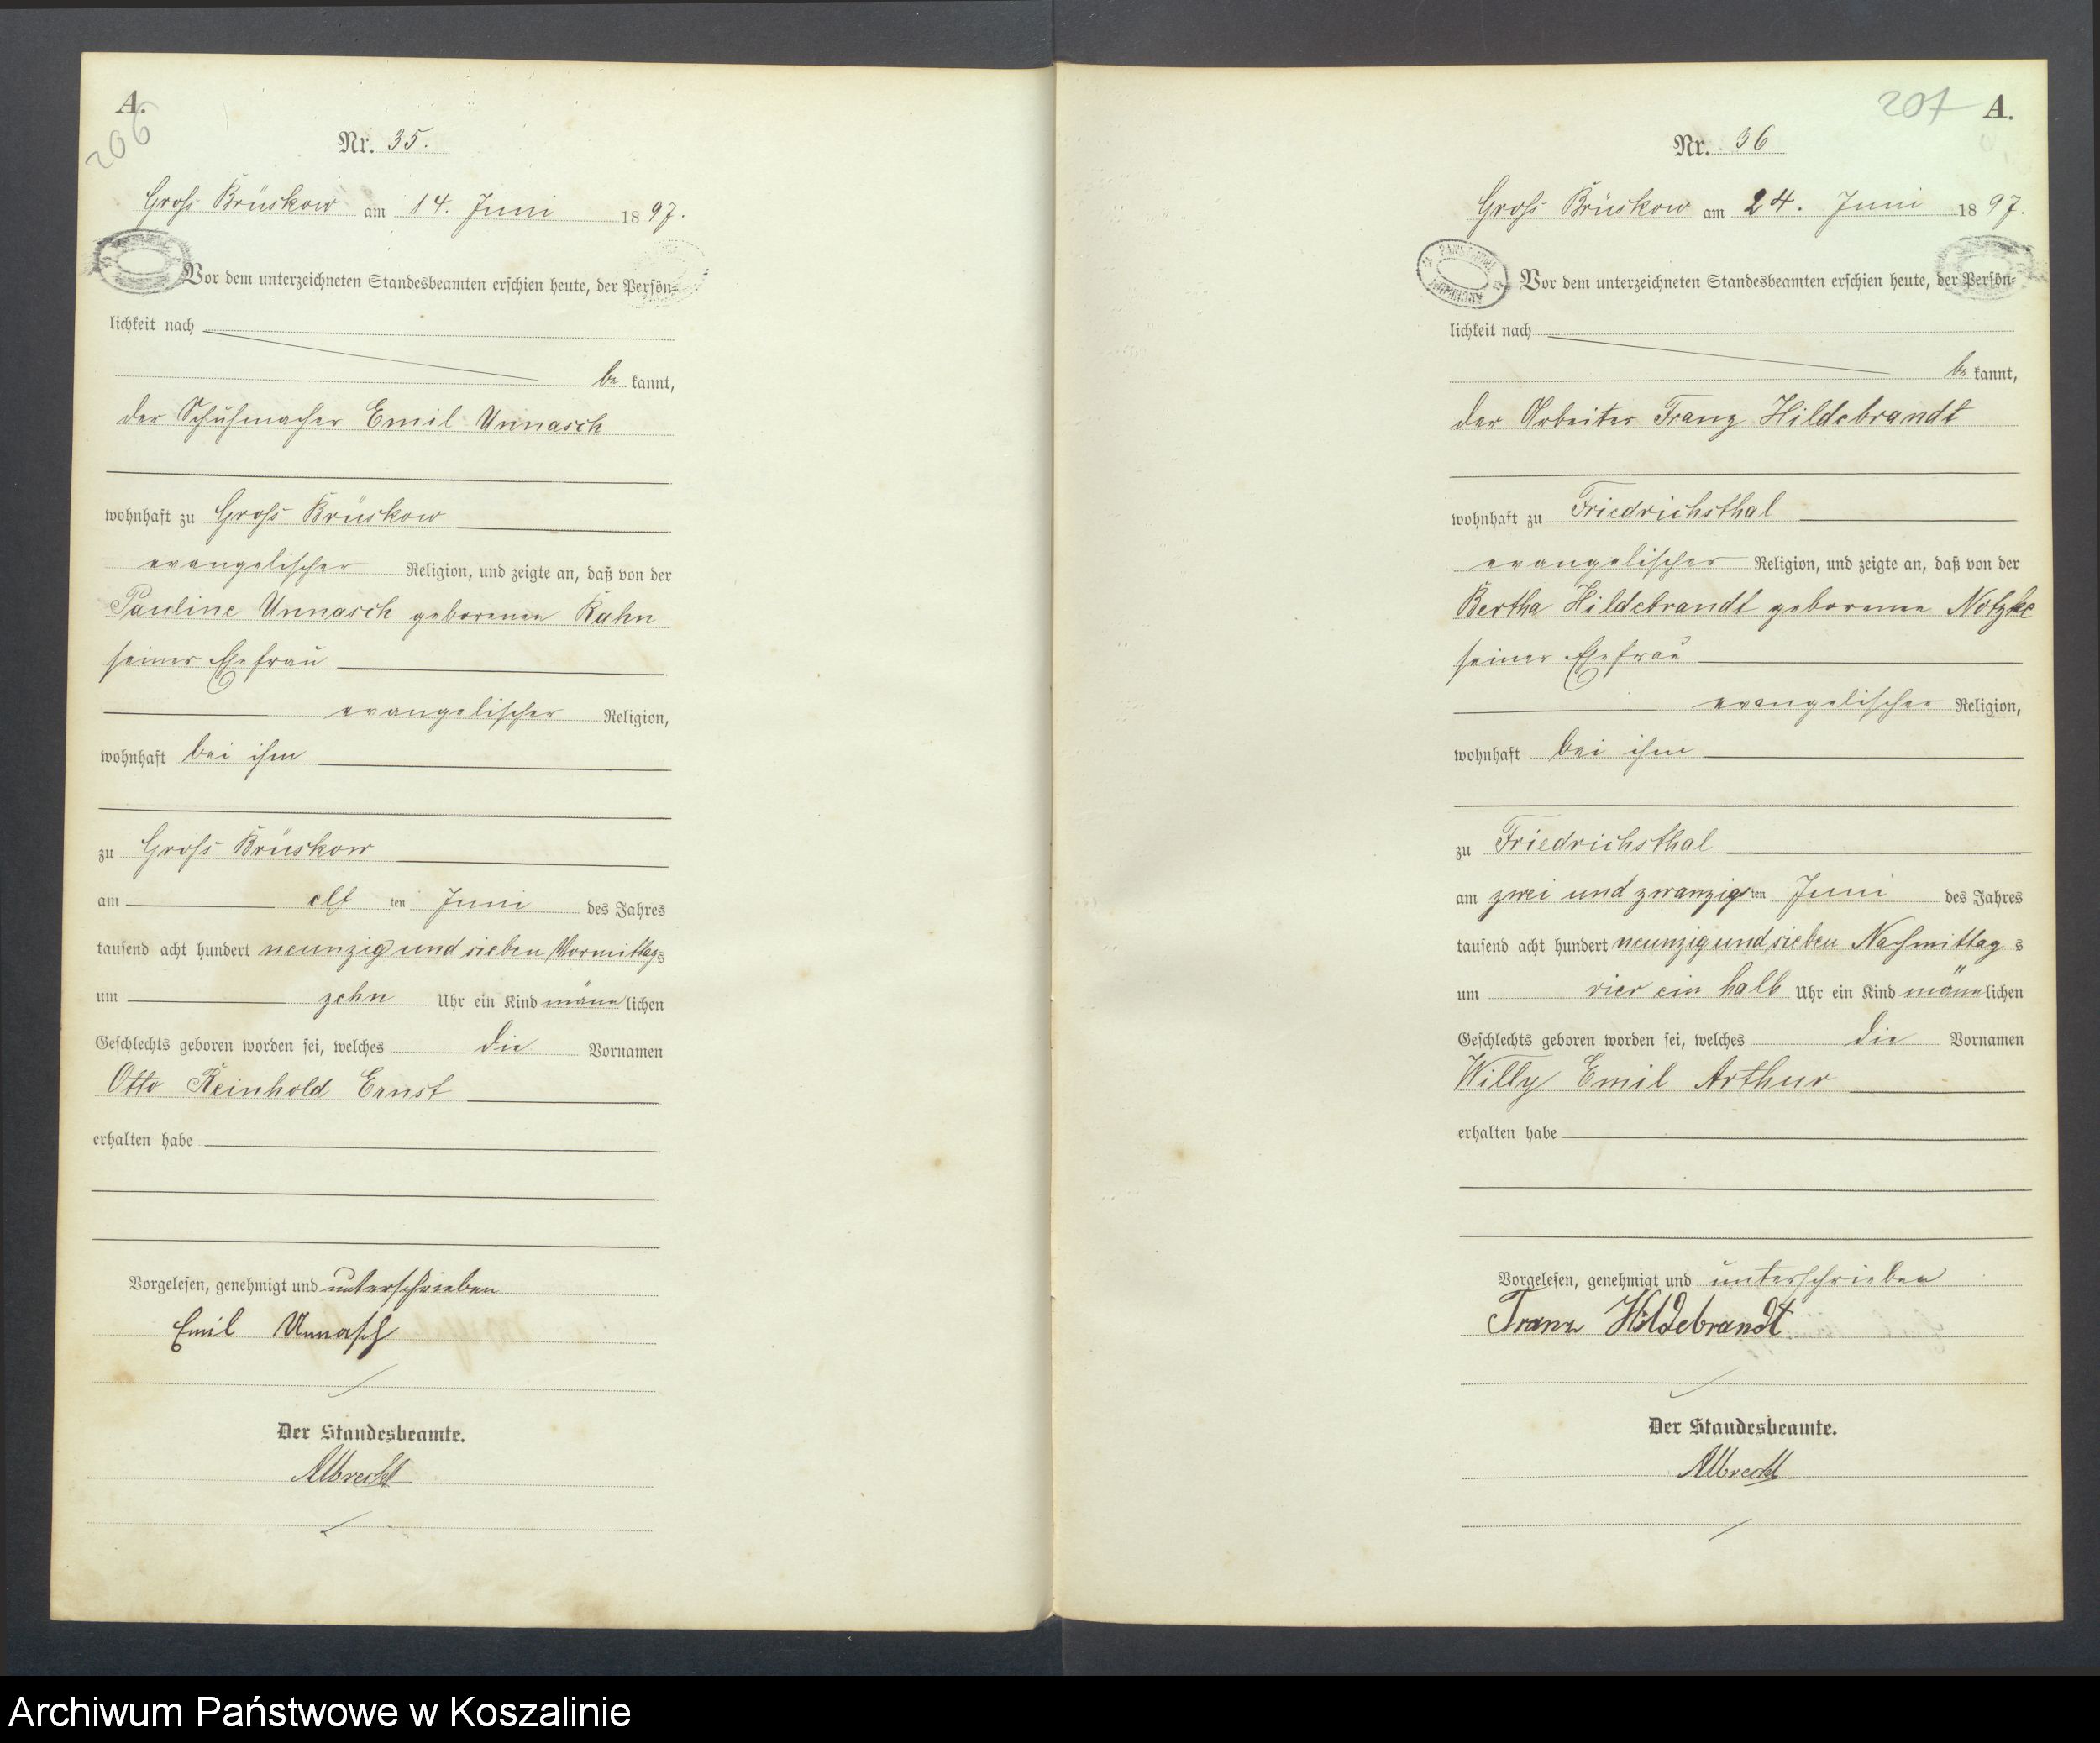 A.
206
Nr. 35.
Groß Brüskow am 14. Juni 1897.
Vor dem unterzeichneten Standesbeamten erschien heute, der Persön-
lichkeit nach
be kannt,
der Schuhmacher Emil Unnasch
wohnhaft zu Groß Brüskow
evangelischer Religion, und zeigte an, daß von der
Pauline Unnasch geborenen Kahn
seiner Ehefrau
evangelischer Religion,
wohnhaft bei ihm
zu Groß Brüskow
am elf ten Juni des Jahres
tausend acht hundert neunzig und sieben Vormittags
um zehn Uhr ein Kind männlichen
Geschlechts geboren worden sei, welches die Vornamen
Otto Reinhold Ernst
erhalten habe
Vorgelesen, genehmigt und unterschrieben
Emil Unnasch
Der Standesbeamte.
Albrecht
207 A.
Nr. 36
Groß Brüskow am 24. Juni 1897.
Vor dem unterzeichneten Standesbeamten erschien heute, der Persön-
lichkeit nach
be kannt,
der Arbeiter Franz Hildebrandt
wohnhaft zu Friedrichsthal
evangelischer Religion, und zeigte an, daß von der
Bertha Hildebrandt geborenen Notzke
seiner Ehefrau
evangelischer Religion,
wohnhaft bei ihm
zu Friedrichsthal
am zwei und zwanzig ten Juni des Jahres
tausend acht hundert neunzig und sieben Nachmittag s
um vier ein halb Uhr ein Kind männlichen
Geschlechts geboren worden sei, welches die Vornamen
Willy Emil Arthur
erhalten habe
Vorgelesen, genehmigt und unterschrieben
Franz Hildebrandt
Der Standesbeamte.
Albrecht
Archiwum Państwowe w Koszalinie